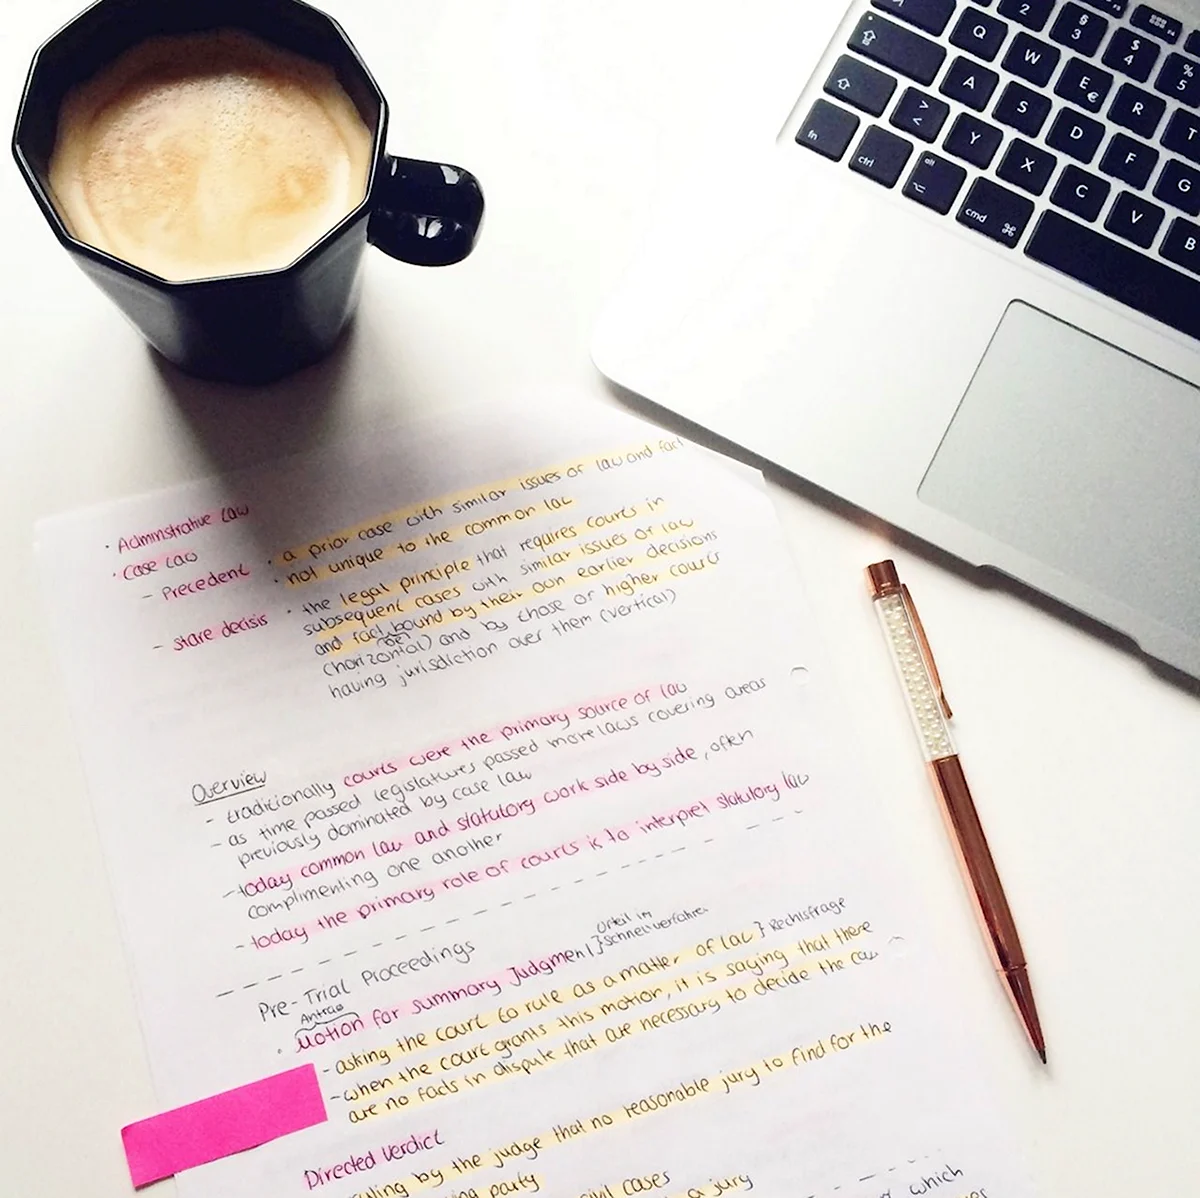 2 § 3 $ 4 % 5
Q W E € R T
A S D F G
> < Y X C V B
fn ctrl alt cmd
· Adminstrative Law
· Case Law
- Precedent
· a prior case with similar issues of law and fact
· not unique to the common law
- stare decisis
· the legal principle that requires courts in
subsequent cases with similar issues of law
and fact be bound by their own earlier decisions
(horizontal) and by those of higher courts
having jurisdiction over them (vertical)
Overview
- traditionally courts were the primary source of law
- as time passed legislatures passed more laws covering areas
previously dominated by case law
- today common law and statutory work side by side, often
complimenting one another
- today the primary role of courts is to interpret statutory law
Pre-Trial Proceedings
Antrag
· Motion for summary Judgment } Urteil im Schnellverfahren
- asking the court to rule as a matter of law } Rechtsfrage
- when the court grants this motion, it is saying that there
are no facts in dispute that are necessary to decide the case
Directed Verdict
ruling by the judge that no reasonable jury to find for the
party
civil cases
a jury
which